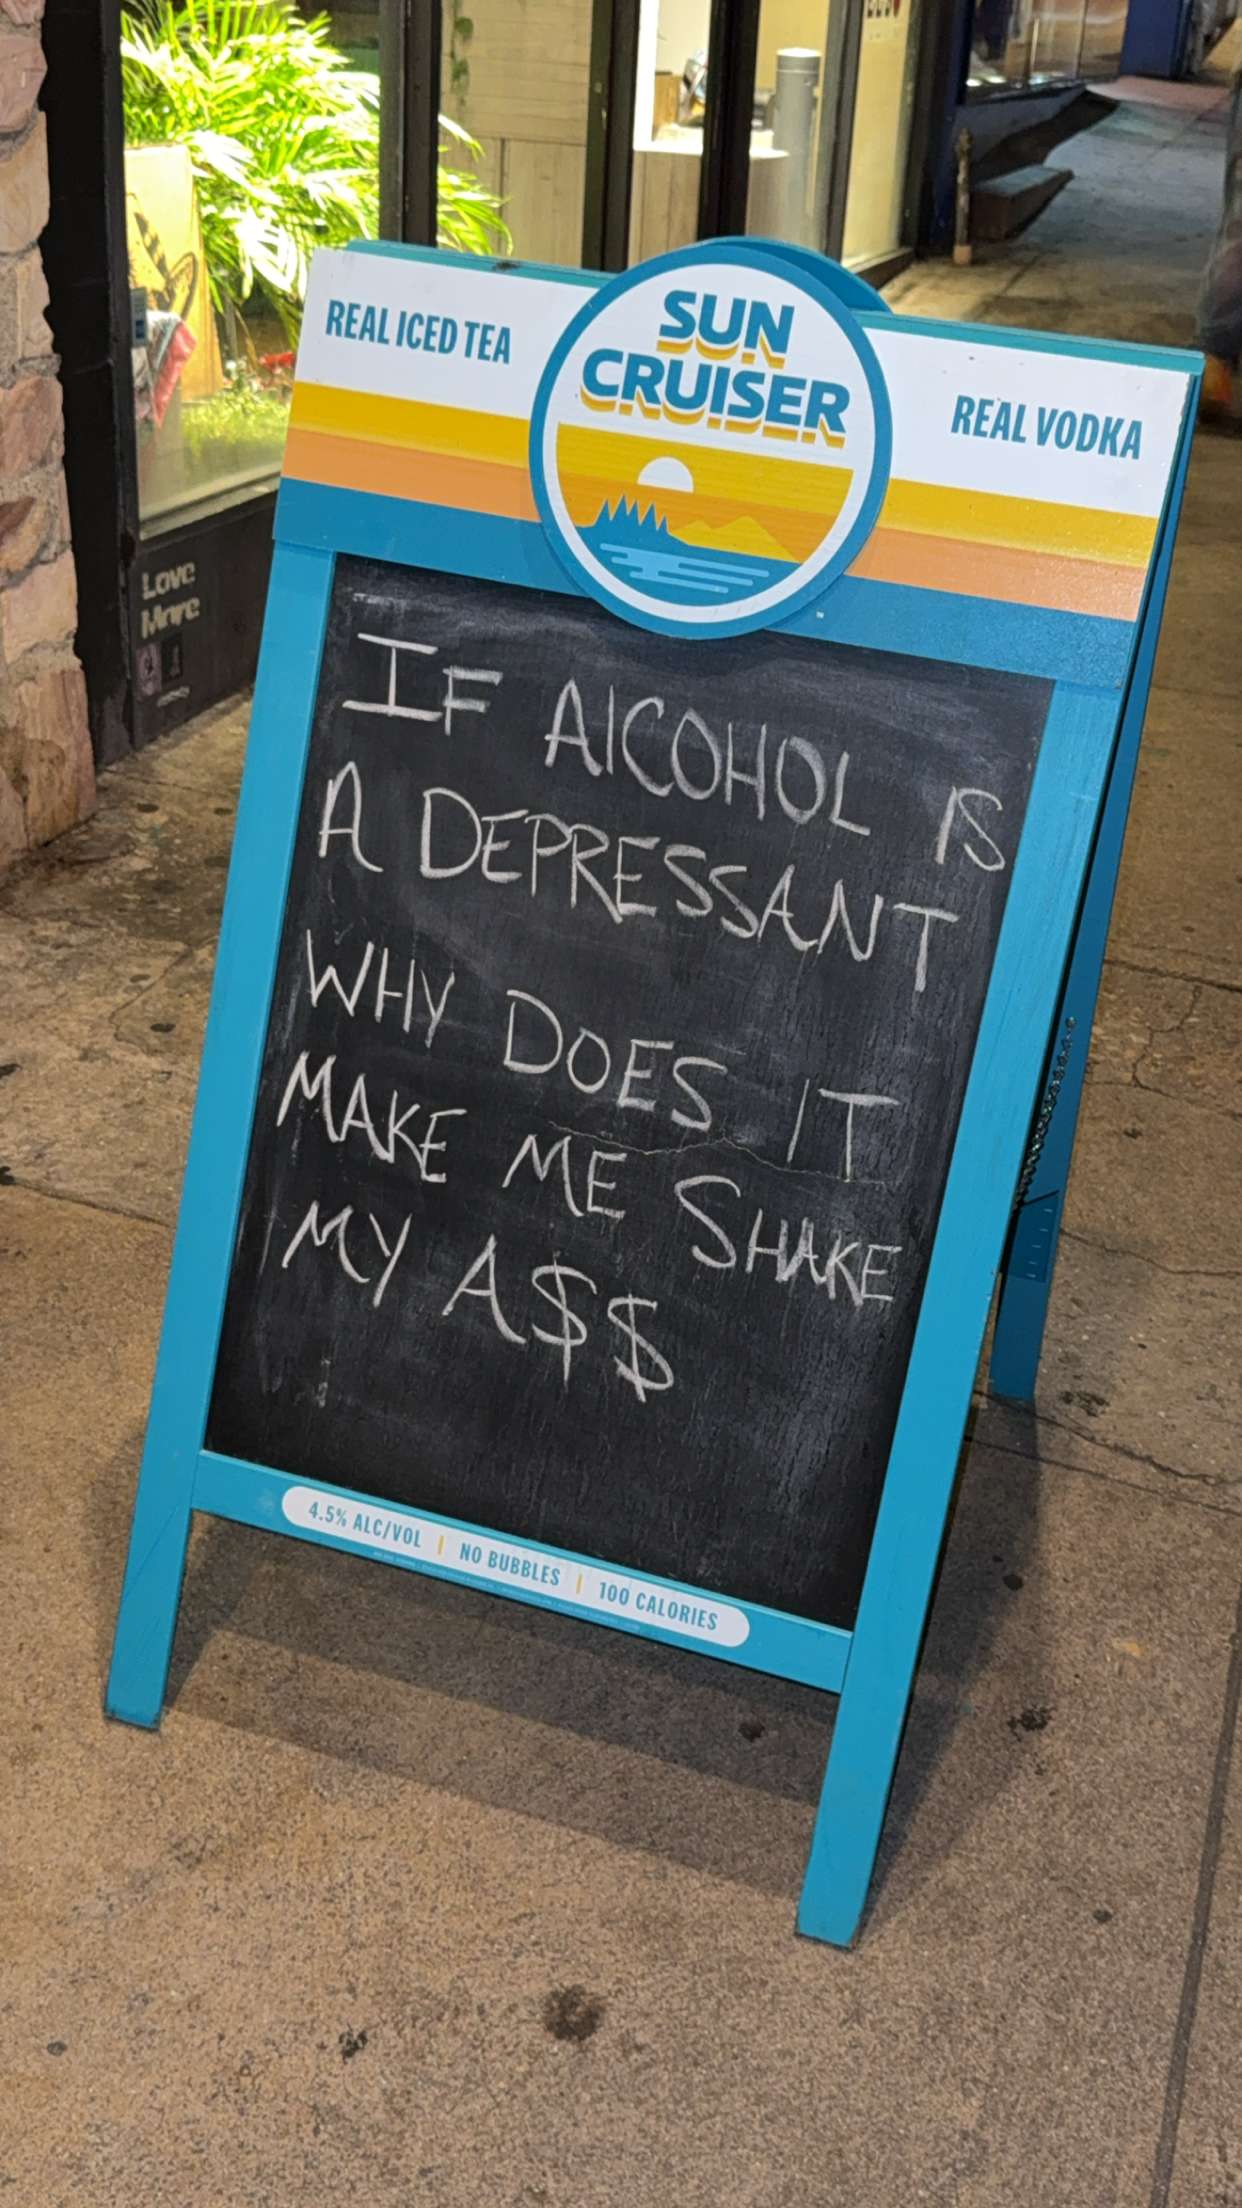 REAL ICED TEA
SUN
CRUISER
REAL VODKA
Love
More
IF AlCOHOL IS
A DEPRESSANT
WHY DOES IT
MAKE ME SHAKE
MY A$$
4.5% ALC/VOL | NO BUBBLES | 100 CALORIES